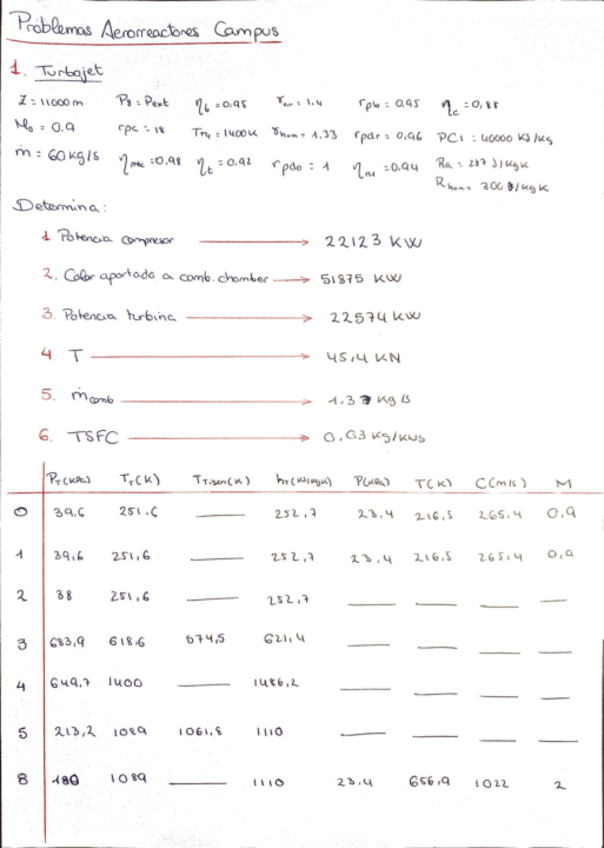 Problemas Aerorreactores Campus
1. Turbojet
Z = 11000 m P8 = Pext ηb = 0,95 γair = 1.4 rpb = 0.95 ηc = 0,88
M0 = 0.9 rpc = 18 TT4 = 1400K γhum = 1.33 rpdr = 0,96 PCI : 40000 KJ/Kg
ṁ = 60 Kg/s ηmec = 0,98 ηt = 0.92 rpdo = 1 = 0,94 Ra = 287 J/KgK
Rhum = 300 J/KgK
Determina:
1 Potencia compresor → 22123 KW
2. Calor aportado a comb. chamber → 51875 KW
3. Potencia turbina → 22574 KW
4. T → 45,4 KN
5. ṁcomb → 1.37 Kg/s
6. TSFC → 0,03 Kg/KNs
PT(KPa) TT(K) TTisen(K) hT(KJ/KgK) P(KPa) T(K) C(m/s) M
0 39.6 251.6 — 252,7 23.4 216,5 265.4 0.9
1 39,6 251,6 — 252,7 23,4 216,5 265,4 0,9
2 38 251,6 — 252,7 — — — —
3 683,9 618.6 574,5 621,4 — — — —
4 649,7 1400 — 1486,2 — — — —
5 213,2 1089 1061,8 1110 — — — —
8 180 1089 — 1110 23.4 656,9 1022 2